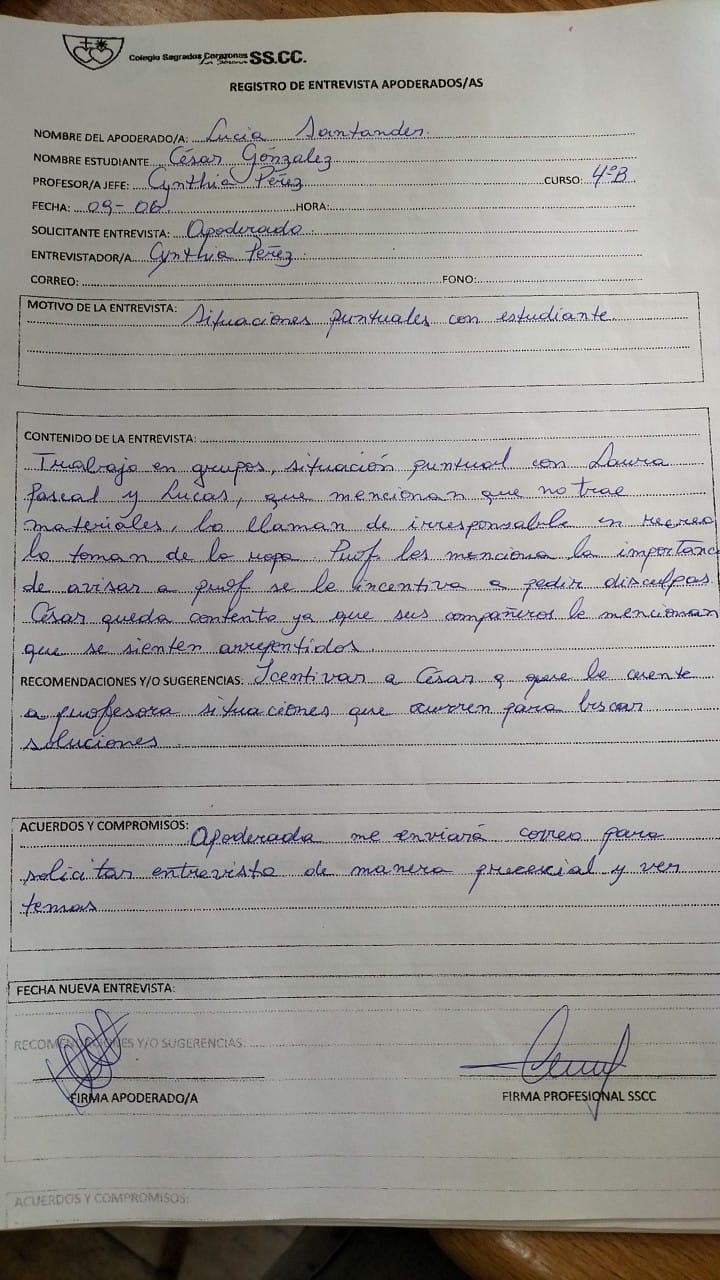 Colegio Sagrados Corazones SS.CC.
La Serena
REGISTRO DE ENTREVISTA APODERADOS/AS
NOMBRE DEL APODERADO/A: Lucia Santander.
NOMBRE ESTUDIANTE César Gónzalez
PROFESOR/A JEFE: Cynthia Pérez CURSO: 4ºB
FECHA: 09-06 HORA:
SOLICITANTE ENTREVISTA: Apoderada.
ENTREVISTADOR/A Cynthia Pérez.
CORREO: FONO:
MOTIVO DE LA ENTREVISTA: Situaciones puntuales con estudiante
CONTENIDO DE LA ENTREVISTA:
Trabajo en grupos, situación puntual con Laura
Pascal y Lucas, que mencionan que no trae
materiales, lo llaman de irresponsable en recreo
lo toman de la ropa. Prof. les menciona la importanc
de avisar a prof se le incentiva a pedir disculpas.
César queda contento ya que sus compañeros le mencionan
que se sienten arrepentidos.
RECOMENDACIONES Y/O SUGERENCIAS. Icentivar a César a que le cuente
a profesora situaciones que ocurren para buscar
soluciones.
ACUERDOS Y COMPROMISOS: Apoderada me enviará correo para
solicitar entrevista de manera precencial y ver
temas
FECHA NUEVA ENTREVISTA:
RECOMENDACIONES Y/O SUGERENCIAS.
FIRMA APODERADO/A FIRMA PROFESIONAL SSCC
ACUERDOS Y COMPROMISOS: